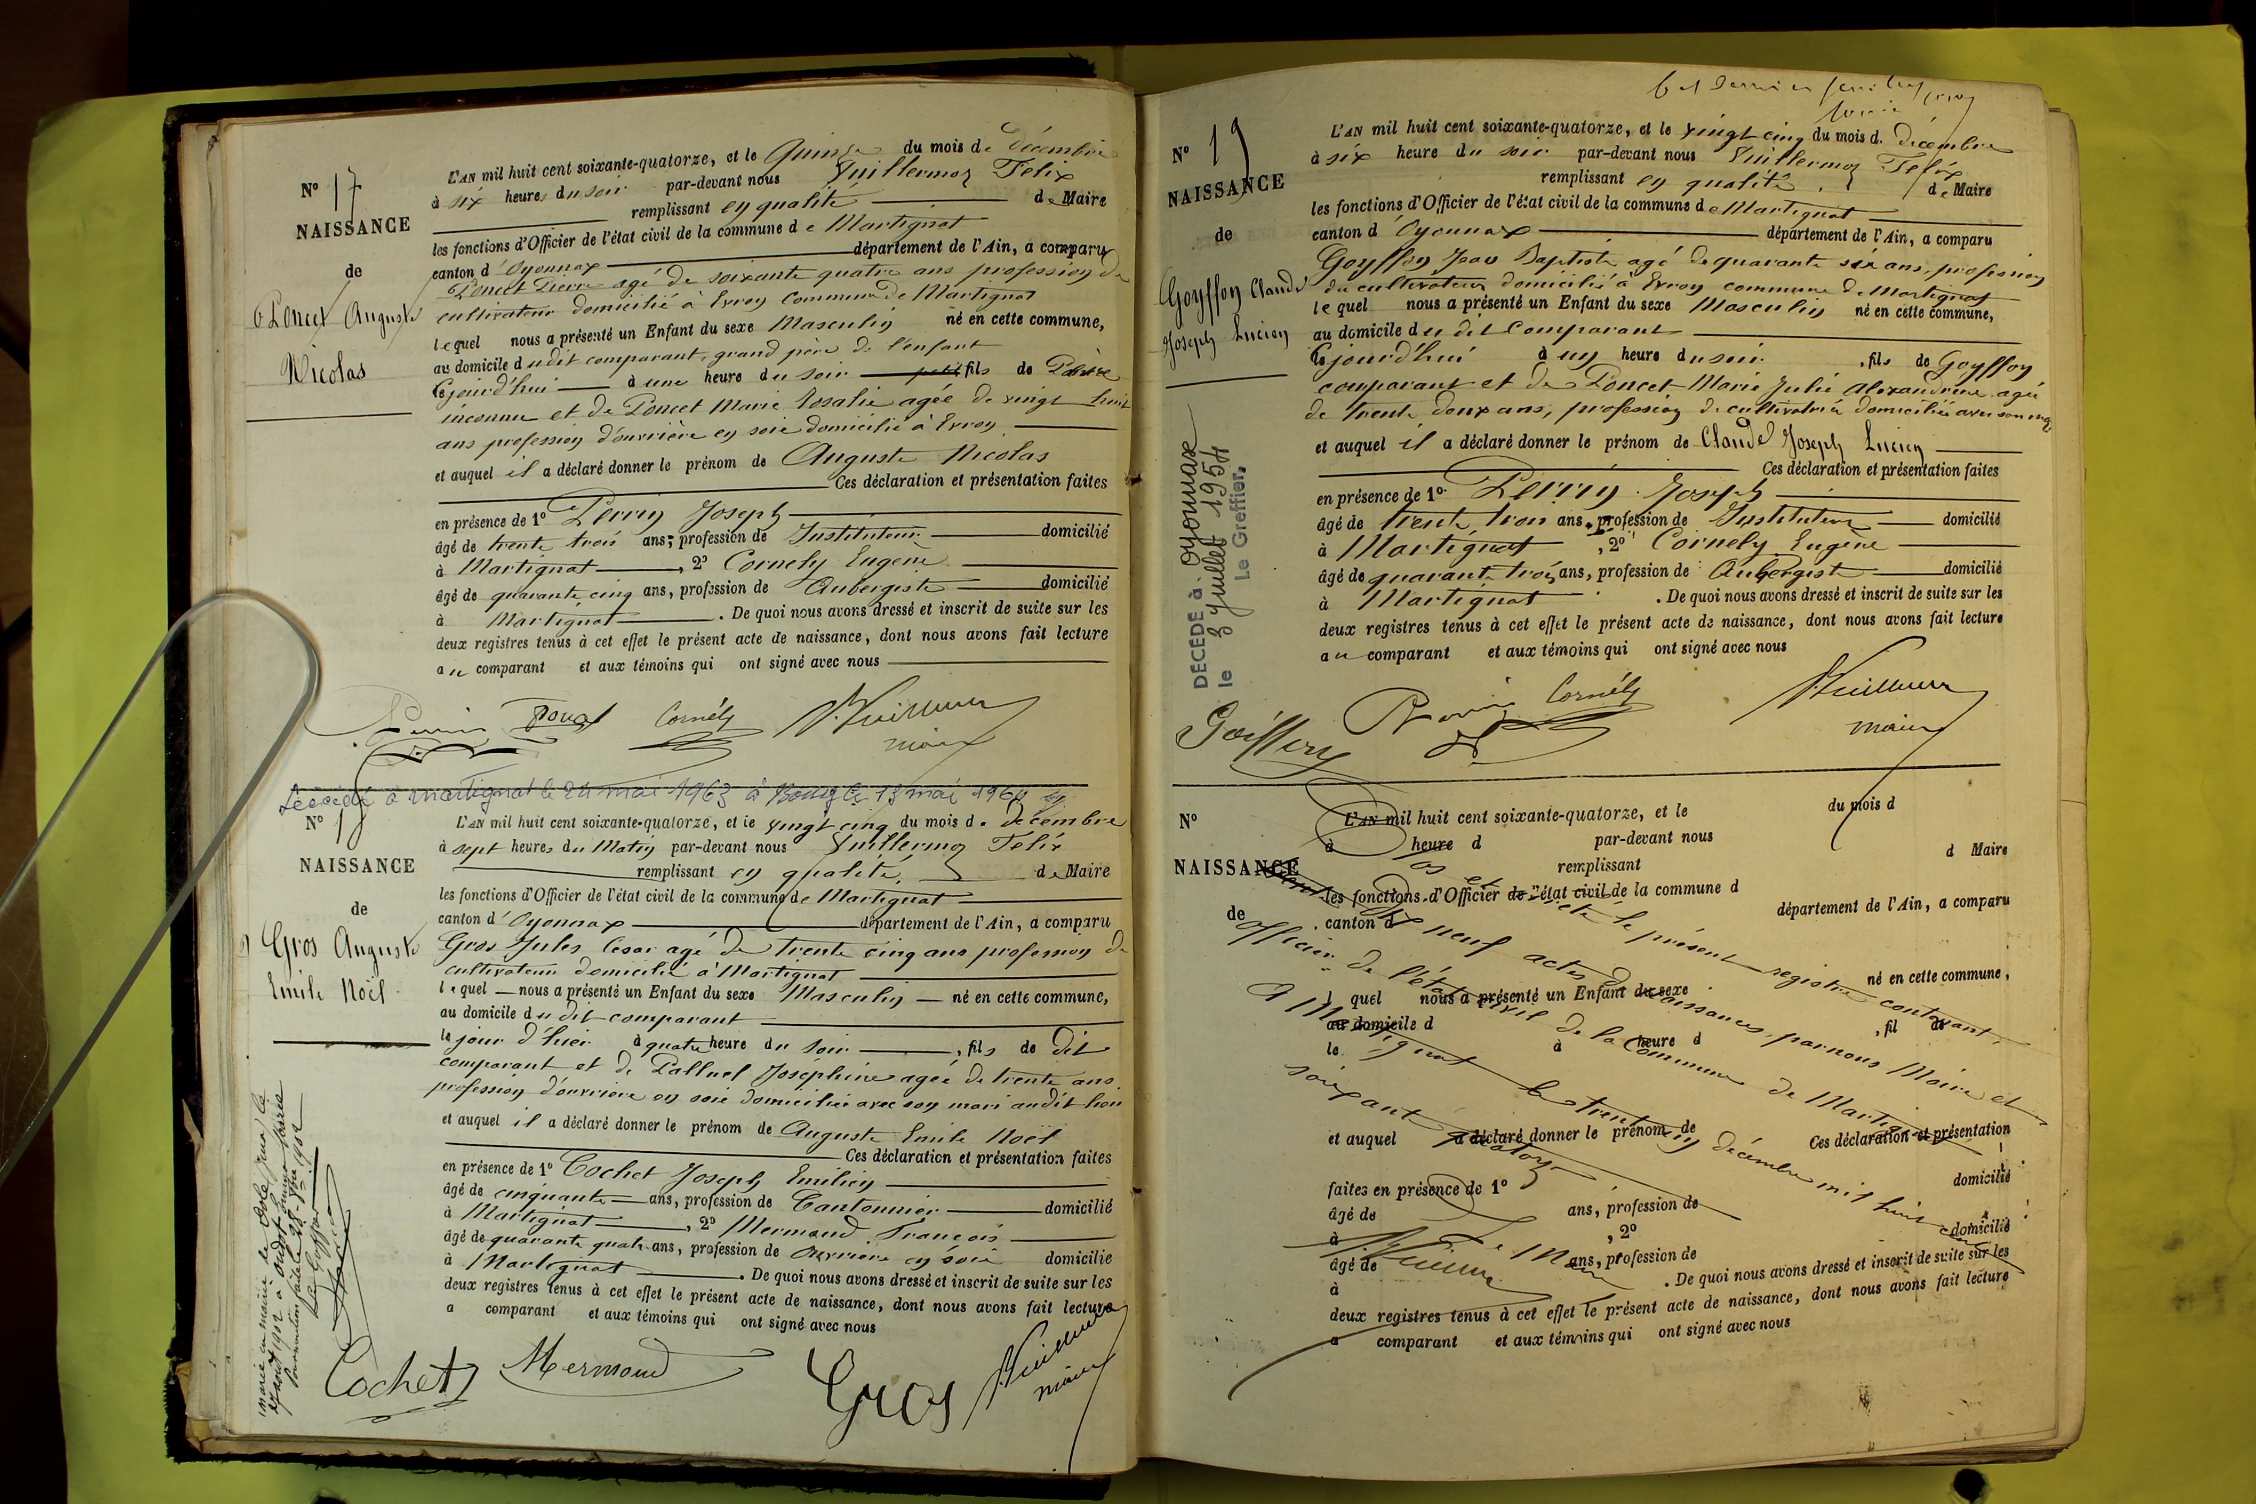 N° 17
NAISSANCE
de
Poncet Auguste
Nicolas
L'AN mil huit cent soixante-quatorze, et le Quinze du mois de décembre
à six heures du soir par-devant nous Vuillermoz Felix
remplissant en qualité de Maire
les fonctions d'Officier de l'état civil de la commune de Martignat
canton d'Oyonnax département de l'Ain, a comparu
Poncet Pierre agé de soixante quatre ans profession de
cultivateur domicilié à Evron commune de Martignat
lequel nous a présenté un Enfant du sexe Masculin né en cette commune,
au domicile dudit comparant, grand père de l'enfant
cejourd'hui à une heure du soir petit fils de Père
inconnu et de Poncet Marie Rosalie agée de vingt huit
ans profession d'ouvrière en soie domicilié à Evron
et auquel il a déclaré donner le prénom de Auguste Nicolas
Ces déclaration et présentation faites
en présence de 1° Perrin Joseph
âgé de trente trois ans, profession de Instituteur domicilié
à Martignat, 2° Cornely Eugène
âgé de quarante cinq ans, profession de Aubergiste domicilié
à Martignat. De quoi nous avons dressé et inscrit de suite sur les
deux registres tenus à cet effet le présent acte de naissance, dont nous avons fait lecture
au comparant et aux témoins qui ont signé avec nous
Perrin Cornély Vuillermoz
maire
Décédé à Martignat le 24 mai 1963
N° 18
NAISSANCE
de
Gros Auguste
Emile Noël
L'AN mil huit cent soixante-quatorze, et le vingt cinq du mois de décembre
à sept heures du Matin par-devant nous Vuillermoz Felix
remplissant en qualité de Maire
les fonctions d'Officier de l'état civil de la commune de Martignat
canton d'Oyonnax département de l'Ain, a comparu
Gros Jules Cesar agé de trente cinq ans profession de
cultivateur domicilié à Martignat
lequel nous a présenté un Enfant du sexe Masculin né en cette commune,
au domicile dudit comparant
le jour d'hier à quatre heure du soir, fils de dit
comparant et de Palluel Joséphine agée de trente ans
profession d'ouvrière en soie domiciliée avec son mari audit lieu
et auquel il a déclaré donner le prénom de Auguste Emile Noël
Ces déclaration et présentation faites
en présence de 1° Cochet Joseph Emilien
âgé de cinquante ans, profession de Cantonnier domicilié
à Martignat, 2° Mermand François
âgé de quarante quatre ans, profession de Ouvrière en soie domicilié
à Martignat. De quoi nous avons dressé et inscrit de suite sur les
deux registres tenus à cet effet le présent acte de naissance, dont nous avons fait lecture
a comparant et aux témoins qui ont signé avec nous
Cochet Mermand Gros Vuillermoz
maire
N° 19
NAISSANCE
de
Goyffon Claude
Joseph Lucien
DECEDE à Oyonnax
le 3 Juillet 1954
Le Greffier,
L'AN mil huit cent soixante-quatorze, et le vingt cinq du mois d. décembre
à six heure du soir par-devant nous Vuillermoz Felix
remplissant en qualité de Maire
les fonctions d'Officier de l'état civil de la commune de Martignat
canton d'Oyonnax département de l'Ain, a comparu
Goyffon Jean Baptiste agé de quarante six ans, profession
de cultivateur domicilié à Evron commune de Martignat
lequel nous a présenté un Enfant du sexe Masculin né en cette commune,
au domicile dudit comparant
cejourd'hui à un heure du soir, fils de Goyffon
comparant et de Poncet Marie Julie Alexandrine agée
de trente deux ans, profession de cultivatrice domiciliée avec son mari
et auquel il a déclaré donner le prénom de Claude Joseph Lucien
Ces déclaration et présentation faites
en présence de 1° Perrin Joseph
âgé de trente trois ans, profession de Instituteur domicilié
à Martignat, 2° Cornely Eugène
âgé de quarante trois ans, profession de Aubergiste domicilié
à Martignat. De quoi nous avons dressé et inscrit de suite sur les
deux registres tenus à cet effet le présent acte de naissance, dont nous avons fait lecture
au comparant et aux témoins qui ont signé avec nous
Goiffon Perrin Cornély Vuillermoz
maire
N°
NAISSANCE
de
L'AN mil huit cent soixante-quatorze, et le du mois d
à heure d par-devant nous
remplissant d Maire
les fonctions d'Officier de l'état civil de la commune d
canton d département de l'Ain, a comparu
né en cette commune,
l quel nous a présenté un Enfant du sexe
au domicile d
le à heure d , fil de
et auquel a déclaré donner le prénom de
Ces déclaration et présentation
faites en présence de 1° domicilié
âgé de ans, profession de
à , 2° domicilié
âgé de ans, profession de
à . De quoi nous avons dressé et inscrit de suite sur les
deux registres tenus à cet effet le présent acte de naissance, dont nous avons fait lecture
a comparant et aux témoins qui ont signé avec nous
Clos et arrêté le présent registre contenant
dix neuf actes de naissances, par nous Maire et
officier de l'état civil de la Commune de Martignat
A Martignat le trente un décembre mil huit cent
soixante quatorze
Le Maire
Vuillermoz